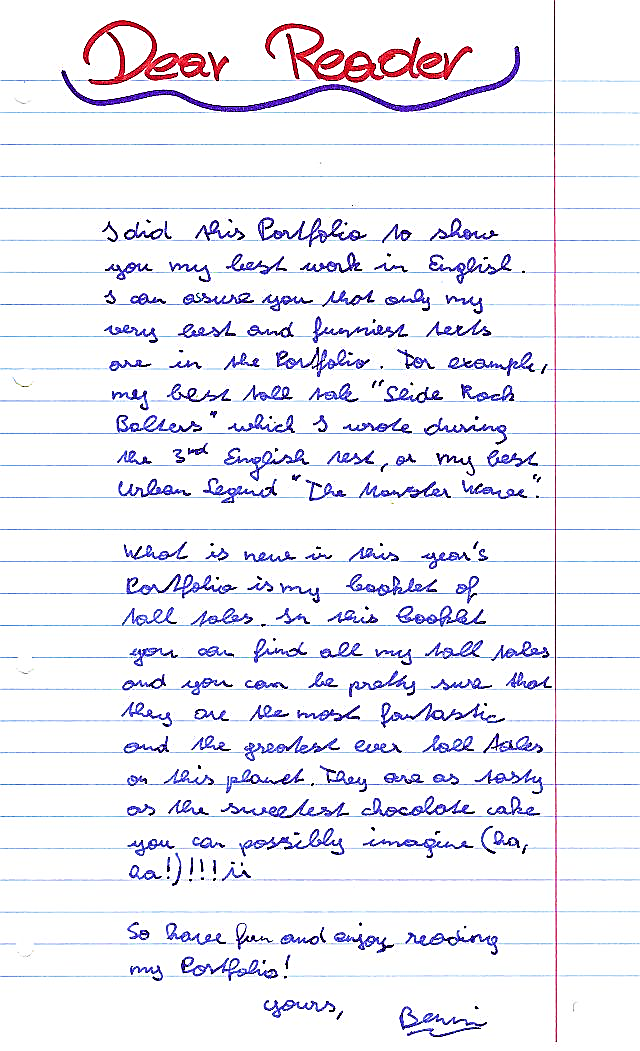 Dear Reader
I did this Portfolio to show
you my best work in English.
I can assure you that only my
very best and funniest texts
are in the Portfolio. For example,
my best tall tale "Slide Rock
Bolters" which I wrote during
the 3rd English test, or my best
Urban Legend "The Monster Wave".
What is new in this year's
Portfolio is my booklet of
tall tales. In this booklet
you can find all my tall tales
and you can be pretty sure that
they are the most fantastic
and the greatest ever tall tales
on this planet. They are as tasty
as the sweetest chocolate cake
you can possibly imagine (ha,
aa!)!!!ii
So have fun and enjoy reading
my Portfolio!
yours,
Benni